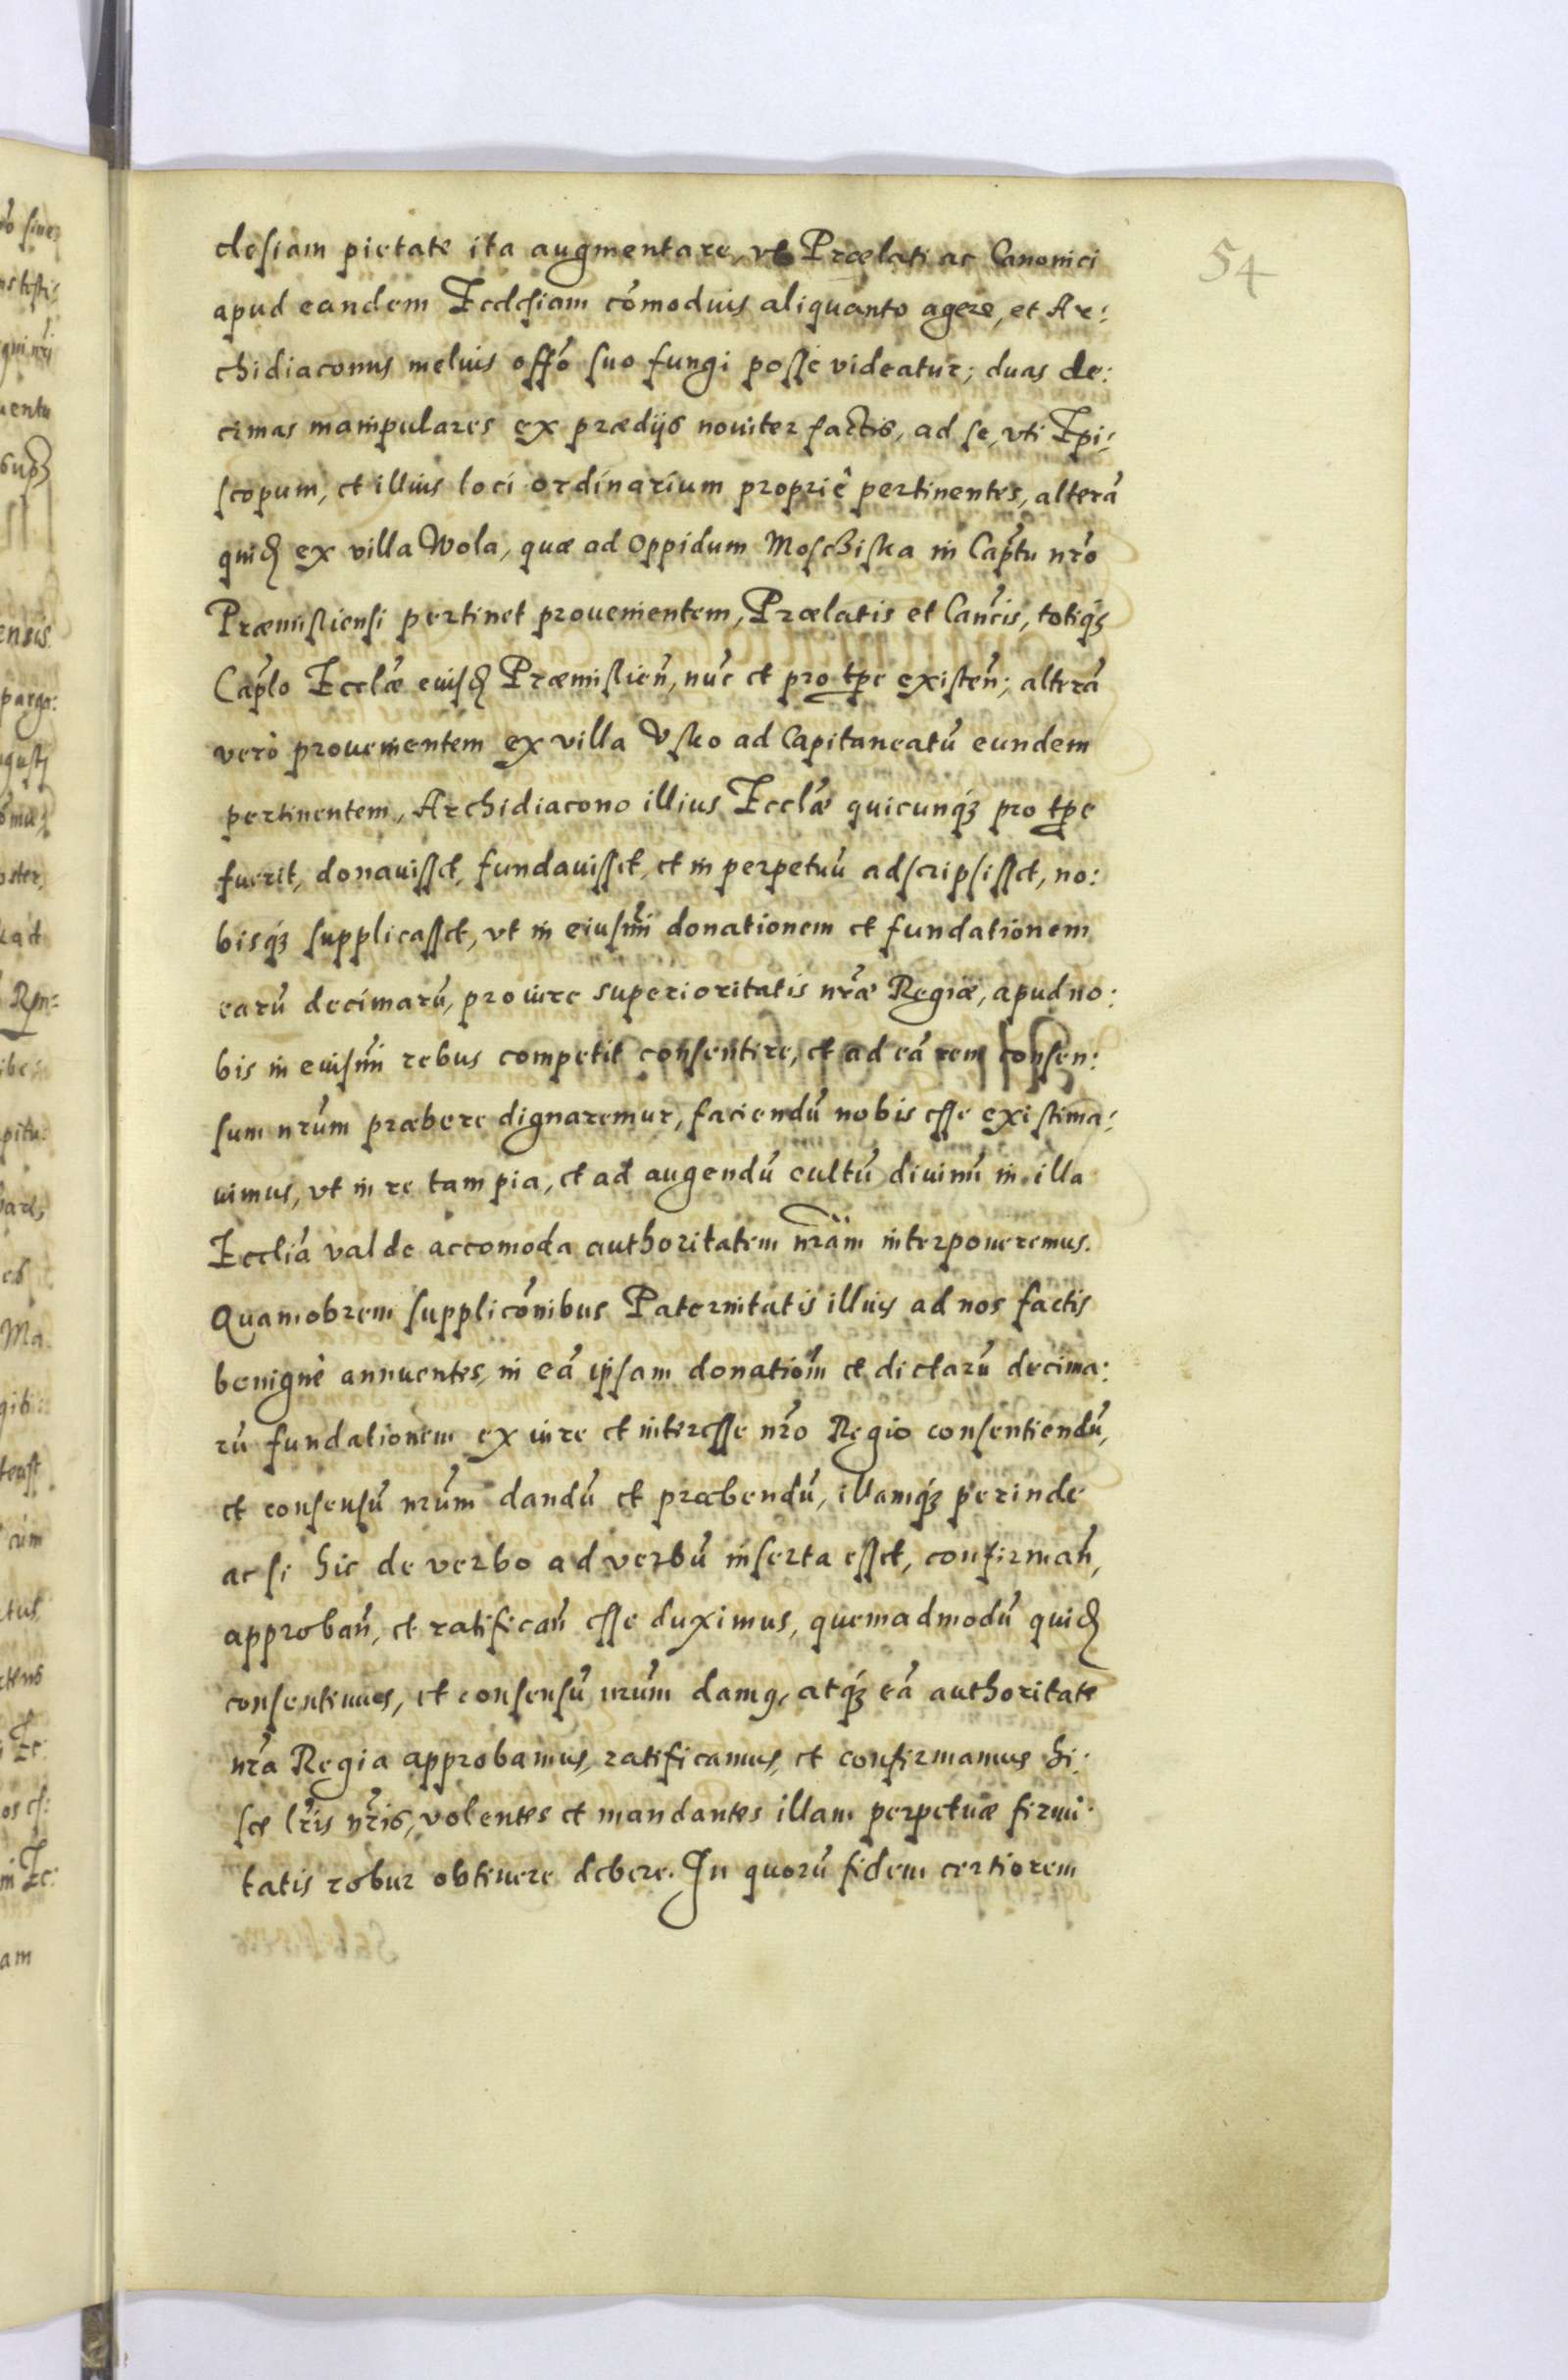 54
clesiam pietate ita augmentare, vt Prælati ac Canonici
apud eandem Ecclesiam cómodius aliquanto agere, et Ar:
chidiaconus melius offó suo fungi posse videatur; duas de:
cimas manipulares ex prædijs nouiter factis, ad se, vti Epi:
scopum, et illius loci ordinarium propriè pertinentes, alterá
quid ex villa Wola, quæ ad oppidum Mosciska in Captu nró
Præmisliensi pertinet prouenientem, Prælatis et Cancis, totiq́3
Caplo Ecclæ eiusd Præmislien̄, nuc et pro tpe existen̄; alterá
verò prouenientem ex villa Vsko ad Capitaneatú eundem
pertinentem, Archidiacono illius Ecclæ quicunq́3 pro tpe
fuerit, donauisset, fundauisset, et in perpetuú adscripsisset, no:
bisq́3 supplicasset, vt in eiusm̄i donationem et fundationem
earú decimarú, pro iure superioritatis nræ Regiæ, apud no:
bis in eiusm̄i rebus competit consentire, et ad eá rem consen:
sum nrúm præbere dignaremur, faciendú nobis esse existima:
uimus, vt in re tam pia, et ad augendú cultú diuinú in illa
Eccliá valde accomoda authoritatem nrám interponeremus.
Quamobrem supplicónibus Paternitatis illius ad nos factis
benignè annuentes, in eá ipsam donatióm et dictarú decima:
rú fundationem ex iure et interesse nró Regio consentiendú,
et consensú nrúm dandú et præbendú, illamq́3 perinde
ac si hic de verbo ad verbú inserta esset, confirman̄,
approban̄, et ratifican̄ esse duximus, quemadmodú quid
consentimus, et consensú nrúm damq, atq́3 eá authoritate
nrá Regia approbamus, ratificamus, et confirmamus hi:
sce lris nris, volentes et mandantes illam perpetuæ firmi:
tatis robur obtinere debere. In quorú fidem certiorem